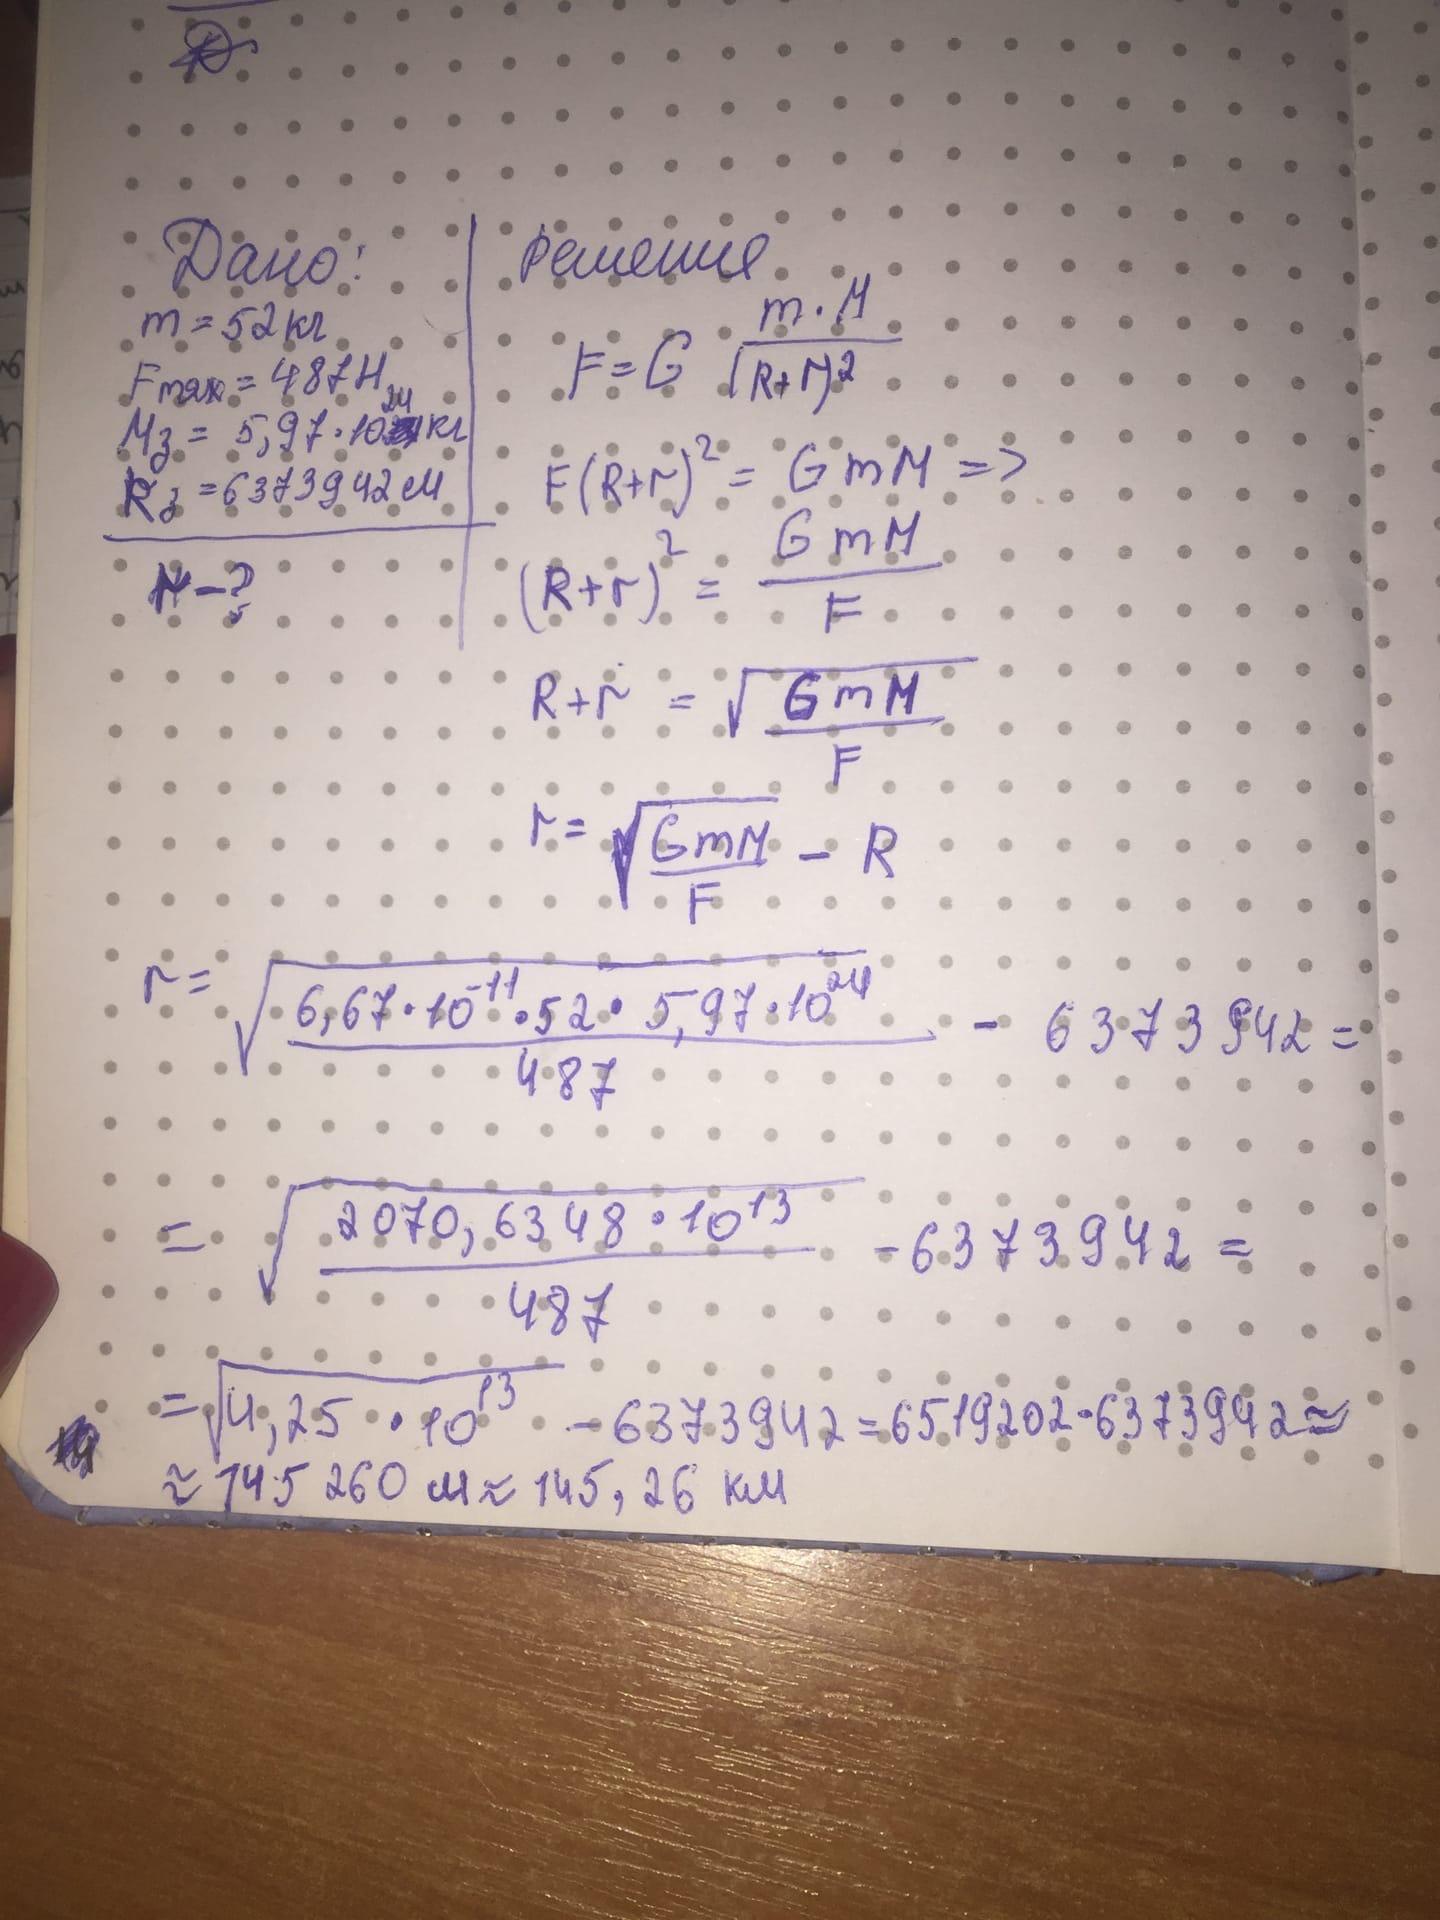 Дано:
m = 52 кг
Fтяж = 487 Н
Mз = 5,97 · 10²⁴ кг
Rз = 6373942 м
r - ?
решение
F = G m · M / (R+r)²
F(R+r)² = GmM =>
(R+r)² = GmM / F
R+r = √(GmM / F)
r = √(GmM / F) - R
r = √(6,67 · 10⁻¹¹ · 52 · 5,97 · 10²⁴ / 487) - 6373942 =
= √(2070,6348 · 10¹³ / 487) - 6373942 =
= √(4,25 · 10¹³) - 6373942 = 6519202 - 6373942 ≈
≈ 145 260 м ≈ 145,26 км